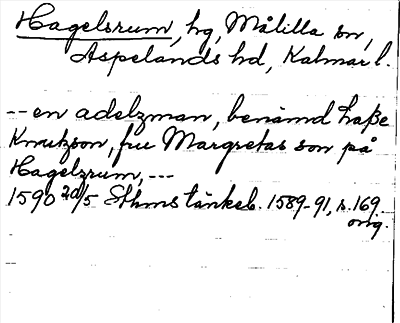 Hagelsrum, hg, Målilla sn,
Aspelands hd, Kalmar l.
-- en adelzman, benämd Laße
Knutzson, fru Margretas son på
Hagelzrum, ---
1590 20/5 Sthms tänkeb. 1589-91, s. 169
orig.